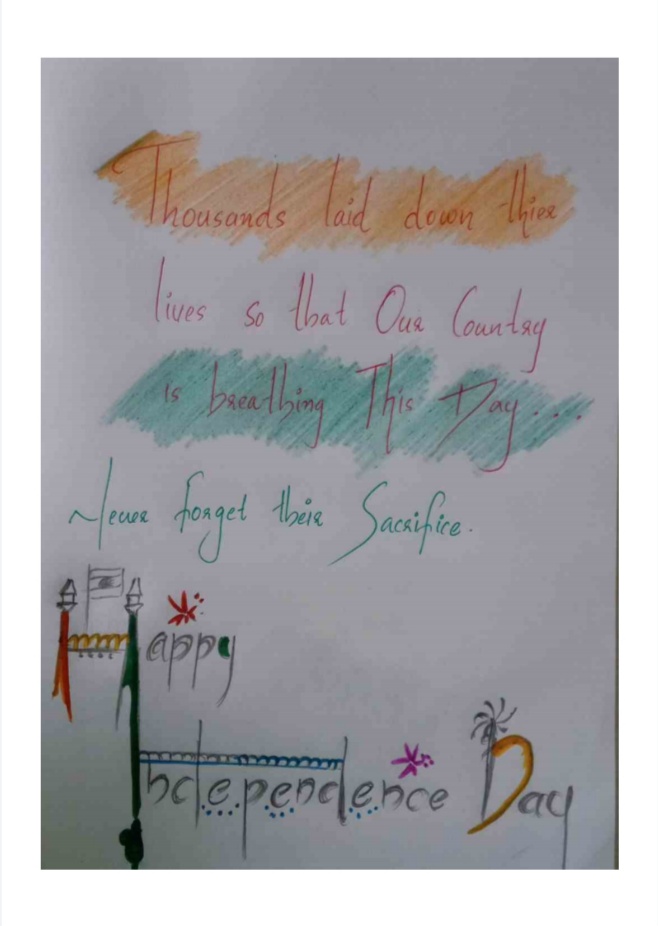 Thousands laid down thier
lives so that Our Country
is breathing This Day....
Never forget their Sacrifice.
Happy
Independence Day